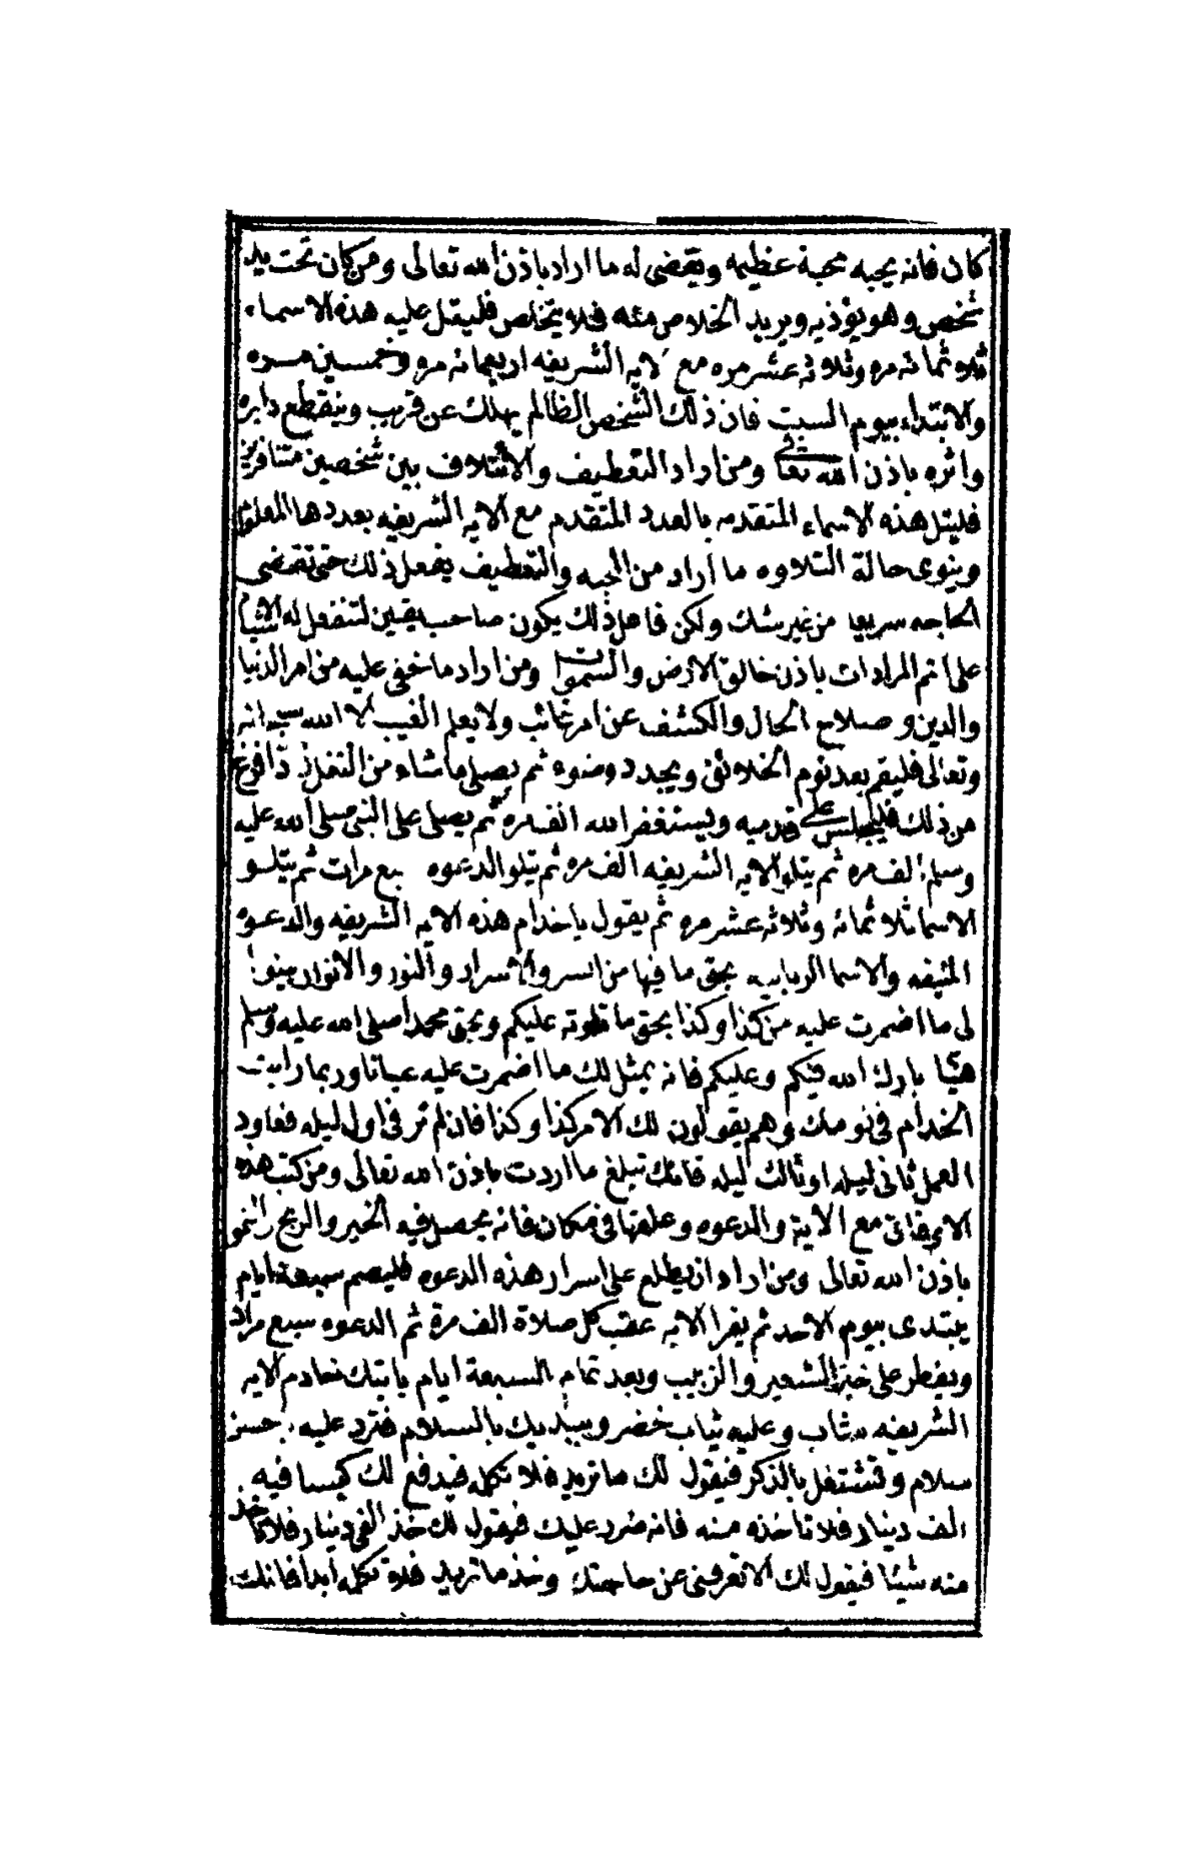 كان فانه يحبه محبة عظيمه ويقضى له ما اراد باذن الله تعالى ومن كان تحت يد
شخص وهو يؤذيه ويريد الخلاص منه فلا يتخلص فليتل عليه هذه الاسماء
ثلاثمائه مره وثلاثه عشر مره مع الايه الشريفه اربعمائه مره وخمسين مره
والابتداء بيوم السبت فان ذلك الشخص الظالم يهلك عن قريب وينقطع دابره
واثره باذن الله تعالى ومن اراد التعطيف والائتلاف بين شخصين متنافرين
فليتل هذه الاسماء المتقدمه بالعدد المتقدم مع الايه الشريفه بعددها المعلوم
وينوى حالة التلاوه ما اراد من المحبه والتعطيف يفعل ذلك حتى تقضى
الحاجه سريعا من غير شك ولكن فاعل ذلك يكون صاحب يقين لتنفعل له الاشيا
على اتم المرادات باذن خالق الارض والسموات ومن اراد ما خفى عليه من امر الدنيا
والدين وصلاح الحال والكشف عن امر غائب ولا يعلم الغيب الا الله سبحانه
وتعالى فليقم بعد نوم الخلائق ويجدد وضوءه ثم يصلى ما شاء من النفل فاذا فرغ
من ذلك فليجلس على قدميه ويستغفر الله الف مره ثم يصلى على النبى صلى الله عليه
وسلم الف مره ثم يتلو الايه الشريفه الف مره ثم يتلو الدعوه سبع مرات ثم يتلو
الاسما ثلاثمائه وثلاثه عشر مره ثم يقول يا خدام هذه الايه الشريفه والدعوه
المنيفه والاسما الربانيه بحق ما فيها من السر والاسرار والنور والانوار بينوا
لى ما اضمرت عليه من كذا وكذا بحق ما تلوته عليكم وبحق محمد صلى الله عليه وسلم
هيا بارك الله فيكم وعليكم فانه يمثل لك ما اضمرت عليه عيانا وربما رايت
الخدام فى نومك وهم يقولون لك الامر كذا وكذا فان لم تر فى اول ليله فعاود
العمل ثانى ليله او ثالث ليله فانك تبلغ ما اردت باذن الله تعالى ومن كتب هذه
الاوفاق مع الاية والدعوه وعلقها فى مكان فانه يحصل فيه الخير والربح والنمو
باذن الله تعالى ومن اراد ان يطلع على اسرار هذه الدعوه فليصم سبعة ايام
يبتدى بيوم الاحد ثم يقرا الايه عقب كل صلاة الف مرة ثم الدعوه سبع مرات
ويفطر على خبز الشعير والزبيب وبعد تمام السبعة ايام ياتيك خادم الايه
الشريفه شاب وعليه ثياب خضر ويبديك بالسلام فترد عليه باحسن
سلام وتشتغل بالذكر فيقول لك ما تريد فلا تكلمه فيدفع لك كيسا فيه
الف دينار فلا تاخذه منه فانه ضرر عليك فيقول لك خذ الفى دينار فلا تاخذ
منه شيئا فيقول لك الا تعرفنى عن حاجتك وخذ ما تريد فلا تكلمه ابدا فانك